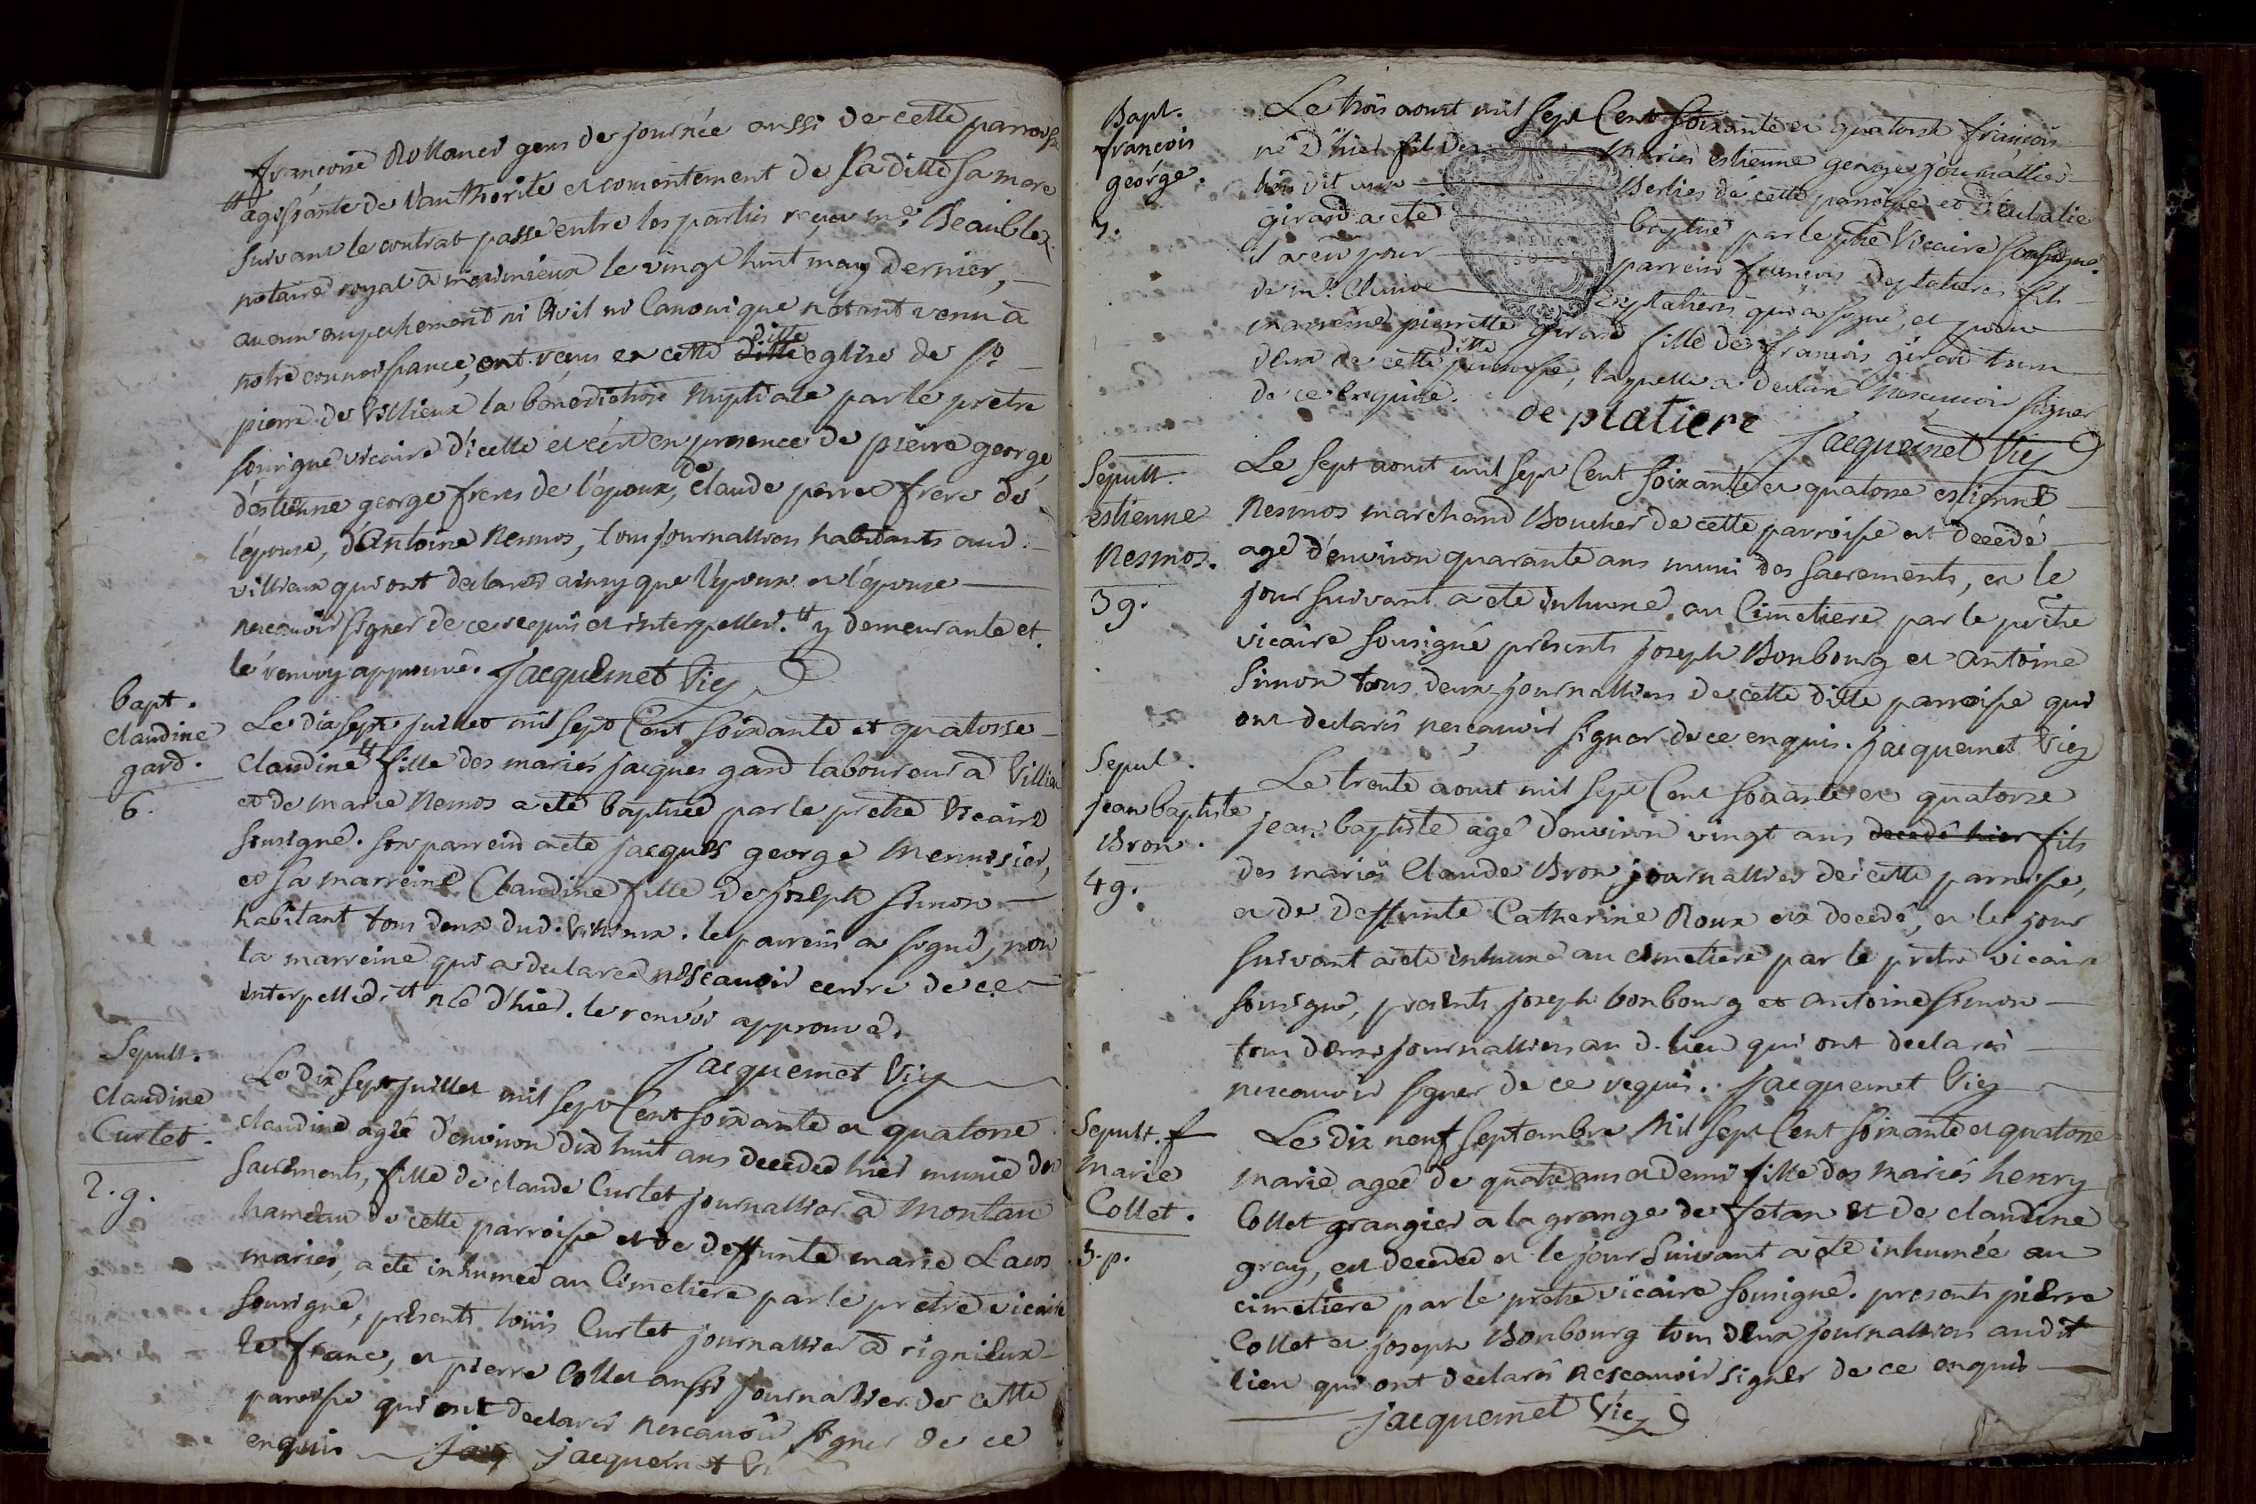 françoise Rolland gens de journée aussi de cette parroisse
# agissante de l'authorité et consentement de sa ditte sa mere
suivant le contrat passé entre les parties reçu me Beaublez
notaire royal à meximieux le vingt huit may dernier,
aucun empechement ni Civil ni Canonique n'etant venu à
notre connoissance, ont reçus en cette ditte eglise de St
pierre de Villieux la bénédiction nuptiale par le pretre
sousigné vicaire d'icelle et c'est en presence de pierre george
d'estienne george freres de l'époux, de claude perret frere de
l'épouse, d'Antoine Nesmos, tous journalliers habitants aud.
villieux qui ont declarés ainsy que l'époux et l'épouse
nescavoir signer de ce requis et interpellés. # y demeurante et
le renvoy approuvé. Jacquemet Vic
bapt.
claudine
gard.
6.
Le dix sept juillet mil sept Cent soixante et quatorse
Claudine # fille des mariés jacques gard laboureur à Villieux
et de marie Nemos a eté baptisée par le pretre Vicaire
sousigné. son parrein a eté jacques george menuisier,
et sa marreine Claudine fille de joseph simon
habitant tous deux dud. Villieux. le parrein a signé, non
la marreine qui a declarée nescavoir ecrire de ce
interpellée, # née d'hier. le renvoi approuvé.
Jacquemet Vic
Sepult.
Claudine
Curtet.
2. g.
Le dix sept juillet mil sept Cent soixante et quatorse
claudine agée d'environ dix huit ans decedée hier munie des
sacrements, fille de claude Curtet journallier à Montau
hameau de cette parroisse et de deffunte marie Laus
mariés, a eté inhumée au Cimetiere par le pretre vicaire
sousigné, présents louis Curtet journallier à rignieux
le franc, et pierre Collet aussi journallier de cette
paroisse qui ont declarés nescavoir signer de ce
enquis jacquemet Vi
Bapt.
francois
george.
Le trois aout mil sept Cent soixante et quatorse françois
né d'hier fils des mariés estienne george journallier
girard a eté baptisé par le ptre Vicaire sousigné.
il a eu pour parrein françois Deplatieres fils
de mr. Deplatieres qui a signé, et pour
marreine pierrette girard fille de françois girard tous
deux de cette ditte parroisse, laquelle a declaré nescavoir signer
de ce enquise.
de platiere
Jacquemet Vic
Sépult.
estienne
Nesmos.
3 g.
Le sept aout mil sept Cent soixante et quatorse estienne
Nesmos marchand Boucher de cette parroisse est decedé
agé d'environ quarante ans muni des sacrements, et le
jour suivant a eté inhumé au Cimetiere par le prêtre
vicaire sousigné présents joseph Bonbourg et antoine
Simon tous deux journalliers de cette ditte parroisse qui
ont declarés nescavoir signer de ce enquis. jacquemet Vic
Sepul.
jean baptiste
Bron.
4 g.
Le trente aout mil sept Cent soixante et quatorse
jean baptiste agé d'environ vingt ans decedé hier fils
des mariés Claude Bron journallier de cette parroisse,
et de deffunte Catherine Roux est decedé, et le jour
suivant a eté inhumé au cimetiere par le pretre vicaire
sousigné, présents joseph bonbourg et antoine simon
tous deux journalliers au d. lieu qui ont declarés
nescavoir signer de ce requis. Jacquemet Vic
Sepult. f
marie
Collet.
3. p.
Le dix neuf septembre Mil sept Cent soixante et quatorse
marie agée de quatre ans et demi fille des mariés henry
Collet grangier à la grange de fétan et de claudine
gray, est decedée et le jour suivant a eté inhumée au
cimetiere par le pretre vicaire sousigné. presents pierre
Collet et joseph Bonbourg tous deux journalliers audit
lieu qui ont declarés nescavoir signer de ce enquis
jacquemet Vic